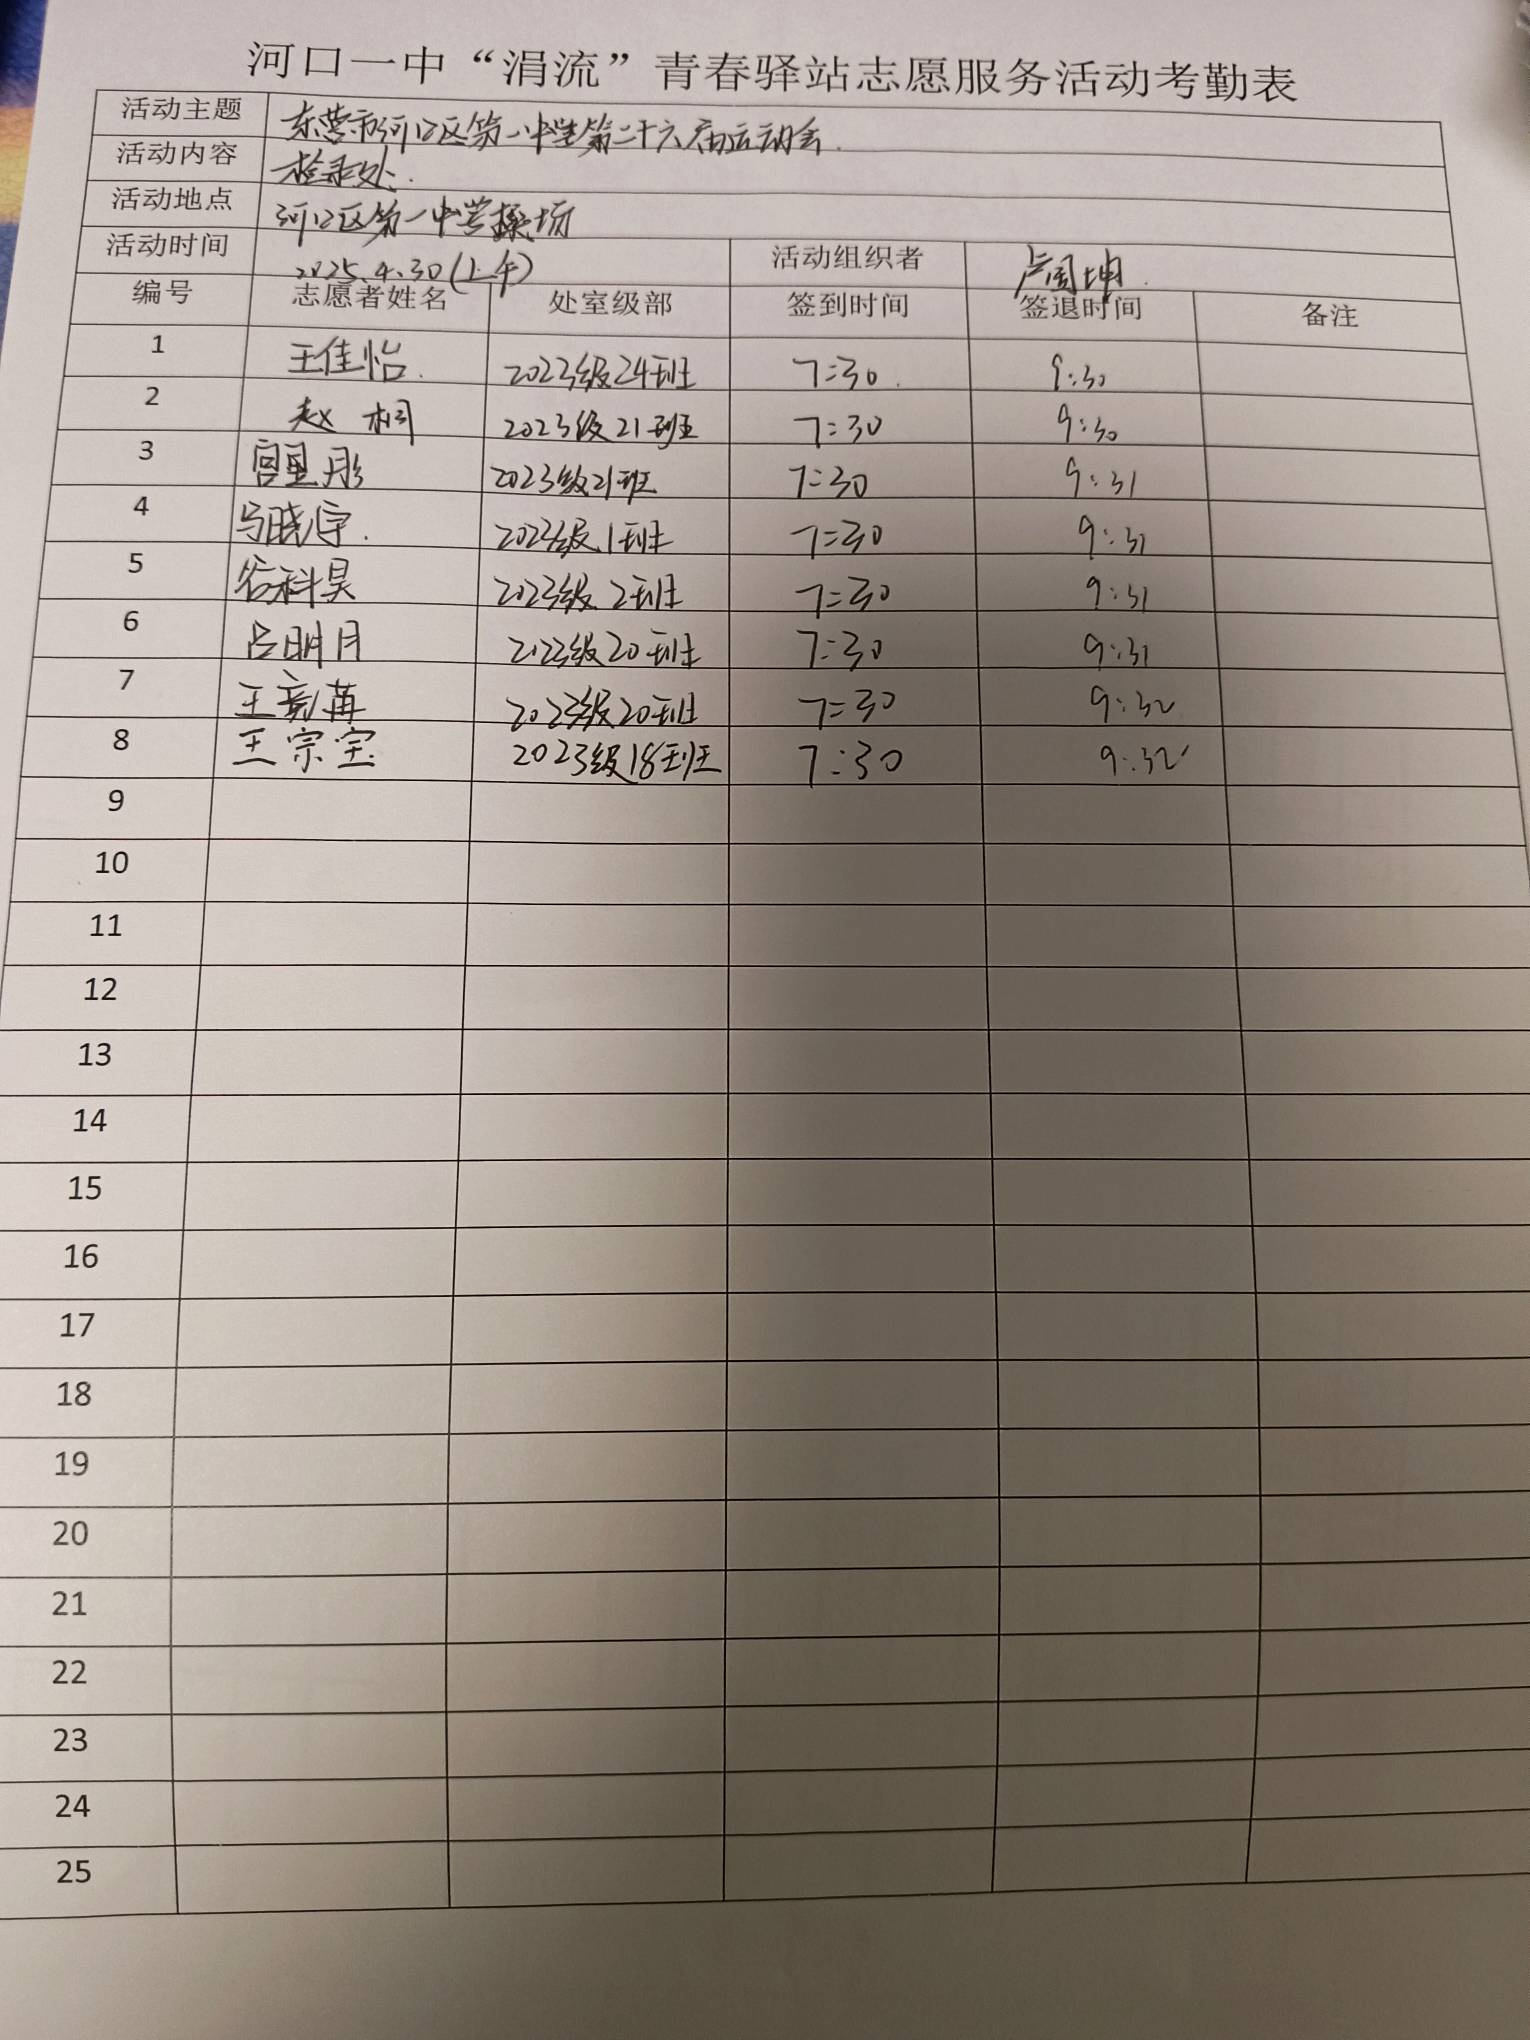 河口一中“涓流”青春驿站志愿服务活动考勤表
活动主题 东营市河口区第一中学第二十六届运动会.
活动内容 检录处.
活动地点 河口区第一中学操场
活动时间 2025.4.30(上午) 活动组织者 卢国坤.
编号 志愿者姓名 处室级部 签到时间 签退时间 备注
1 王佳怡. 2023级24班 7:30. 9:30
2 赵桐 2023级21班 7:30 9:30
3 宫昱彤 2023级21班 7:30 9:31
4 马晓宇. 2023级1班 7:30 9:31
5 谷科昊 2023级2班 7:30 9:31
6 吕明月 2023级20班 7:30 9:31
7 王 苒 2023级20班 7:30 9:32
8 王宗宝 2023级18班 7:30 9:32
9
10
11
12
13
14
15
16
17
18
19
20
21
22
23
24
25